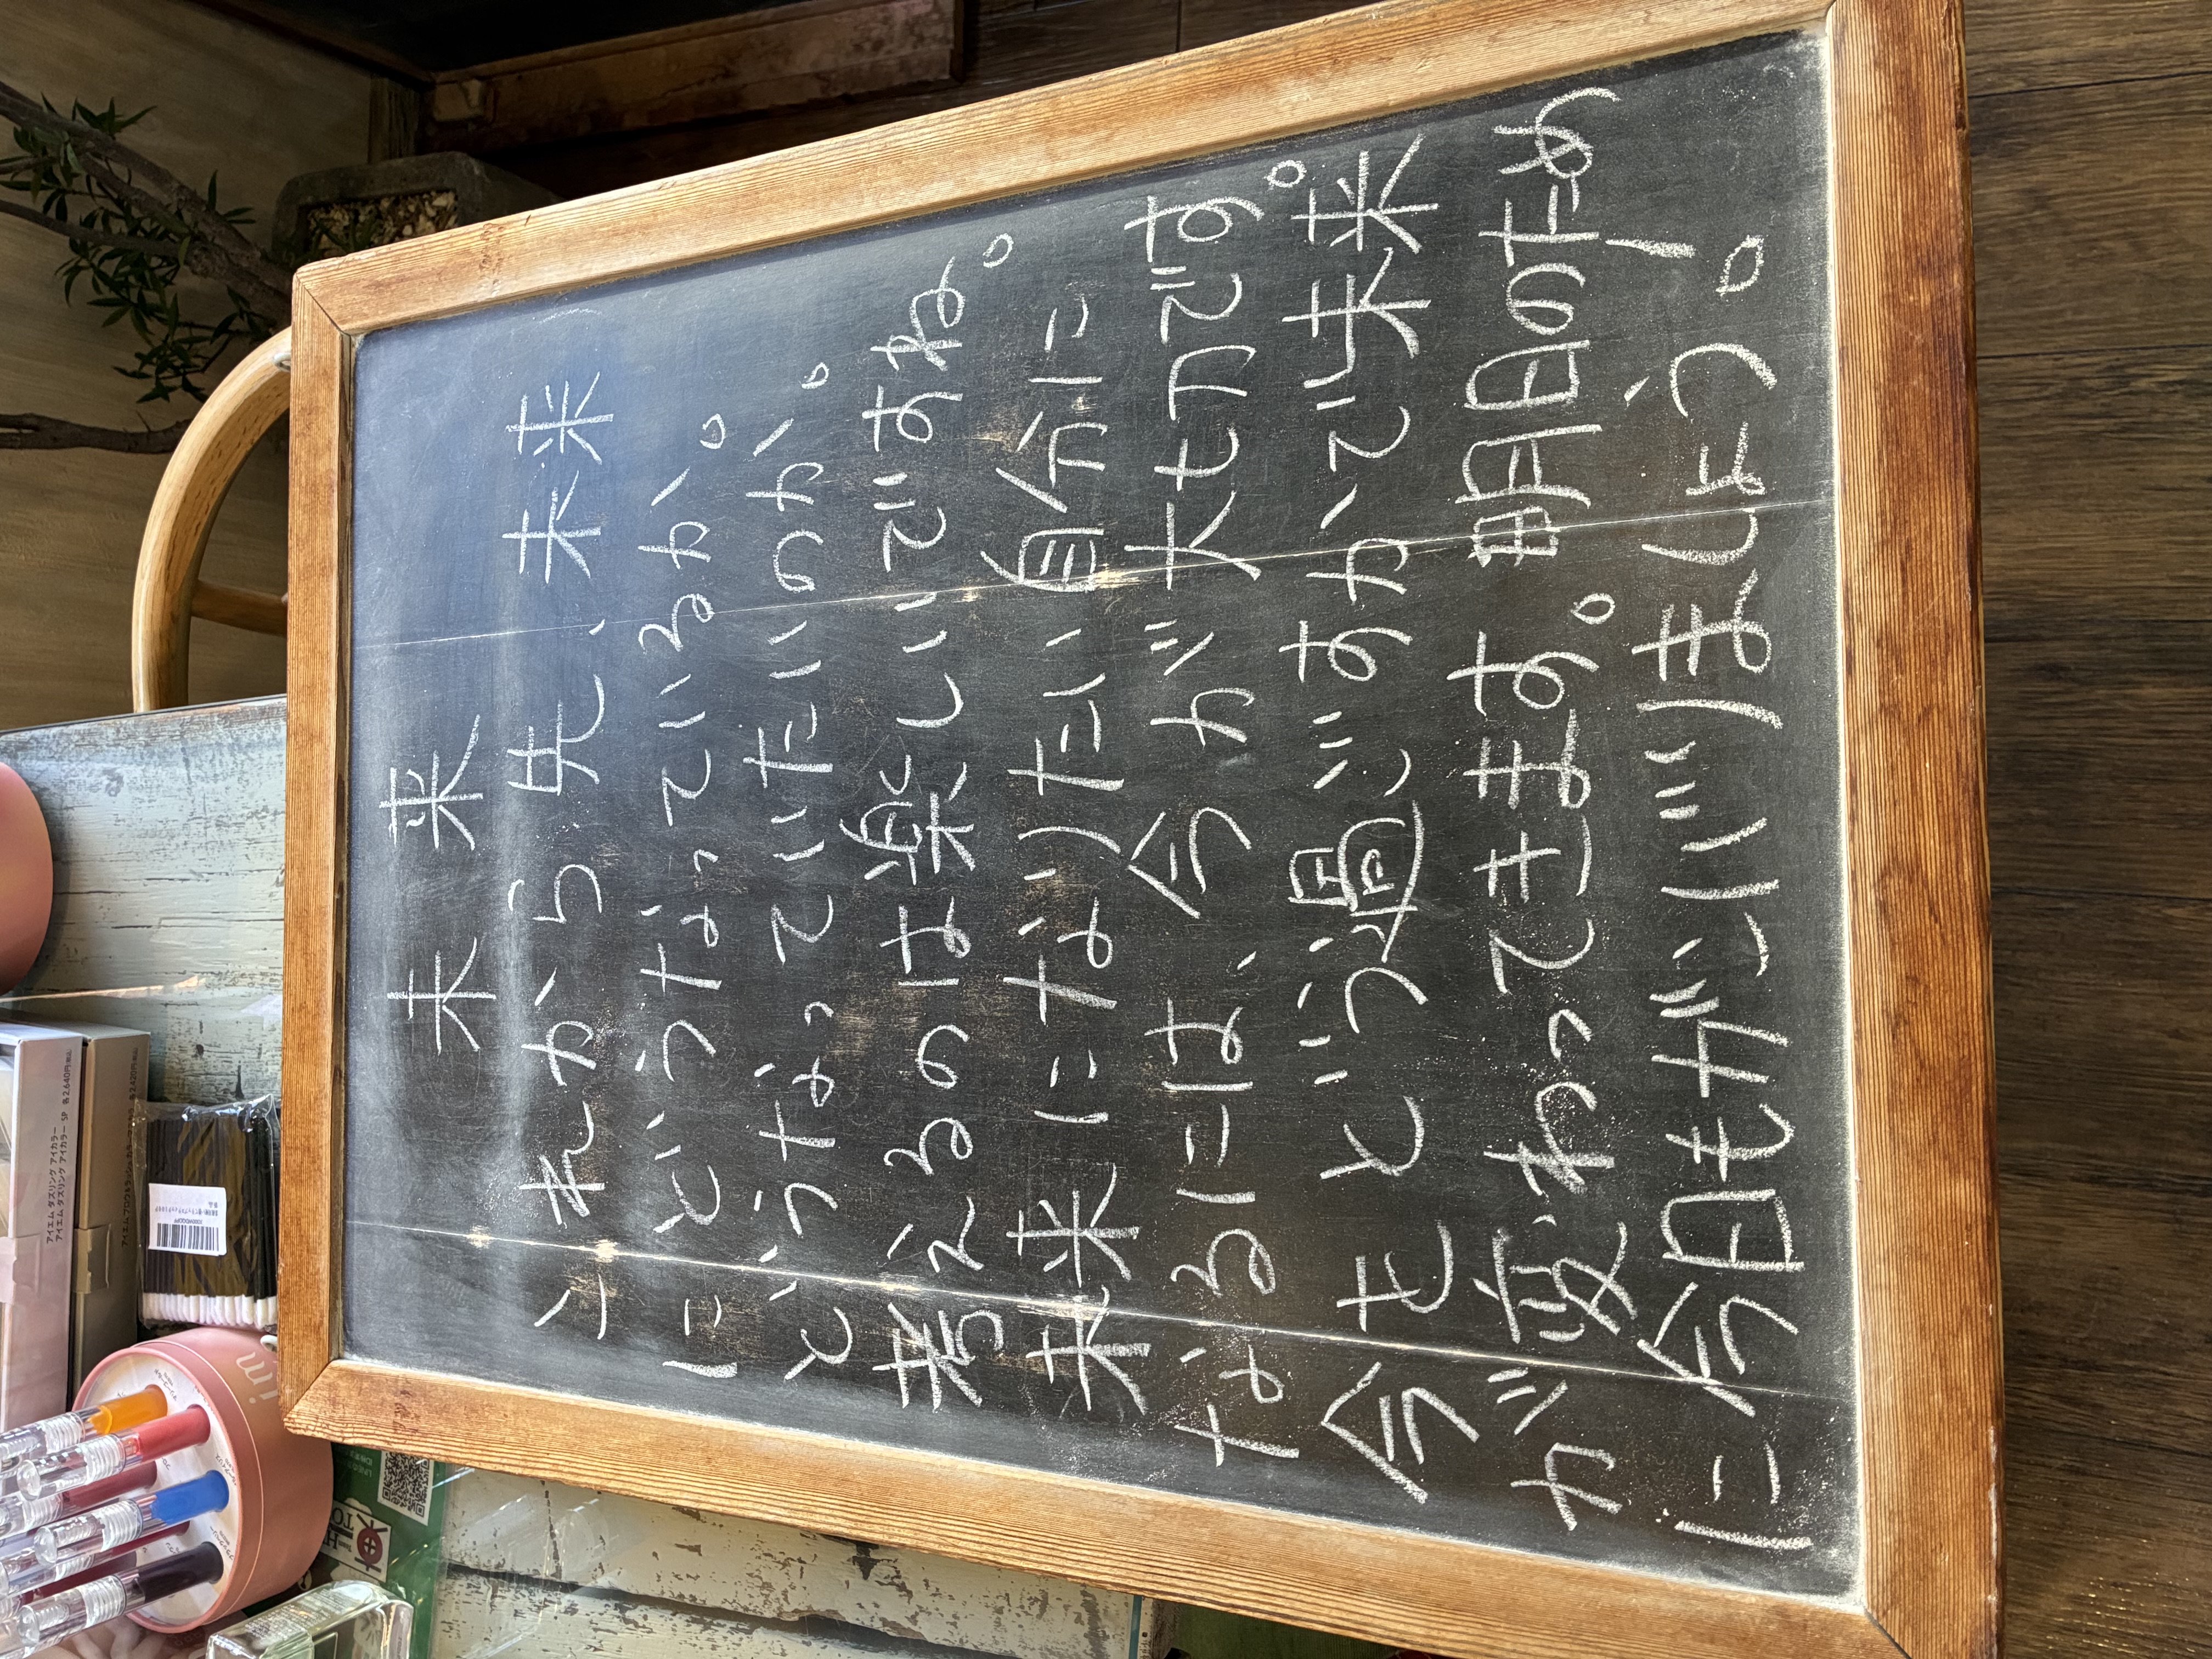 未来
これから先、未来
にどうなっているか。
どうなっていたいのか。
考えるのは楽しいですね。
未来になりたい自分に
なるには、今が大切です。
今をどう過ごすかで未来
が変わってきます。明日のため
に今日もガンバリましょう。
im